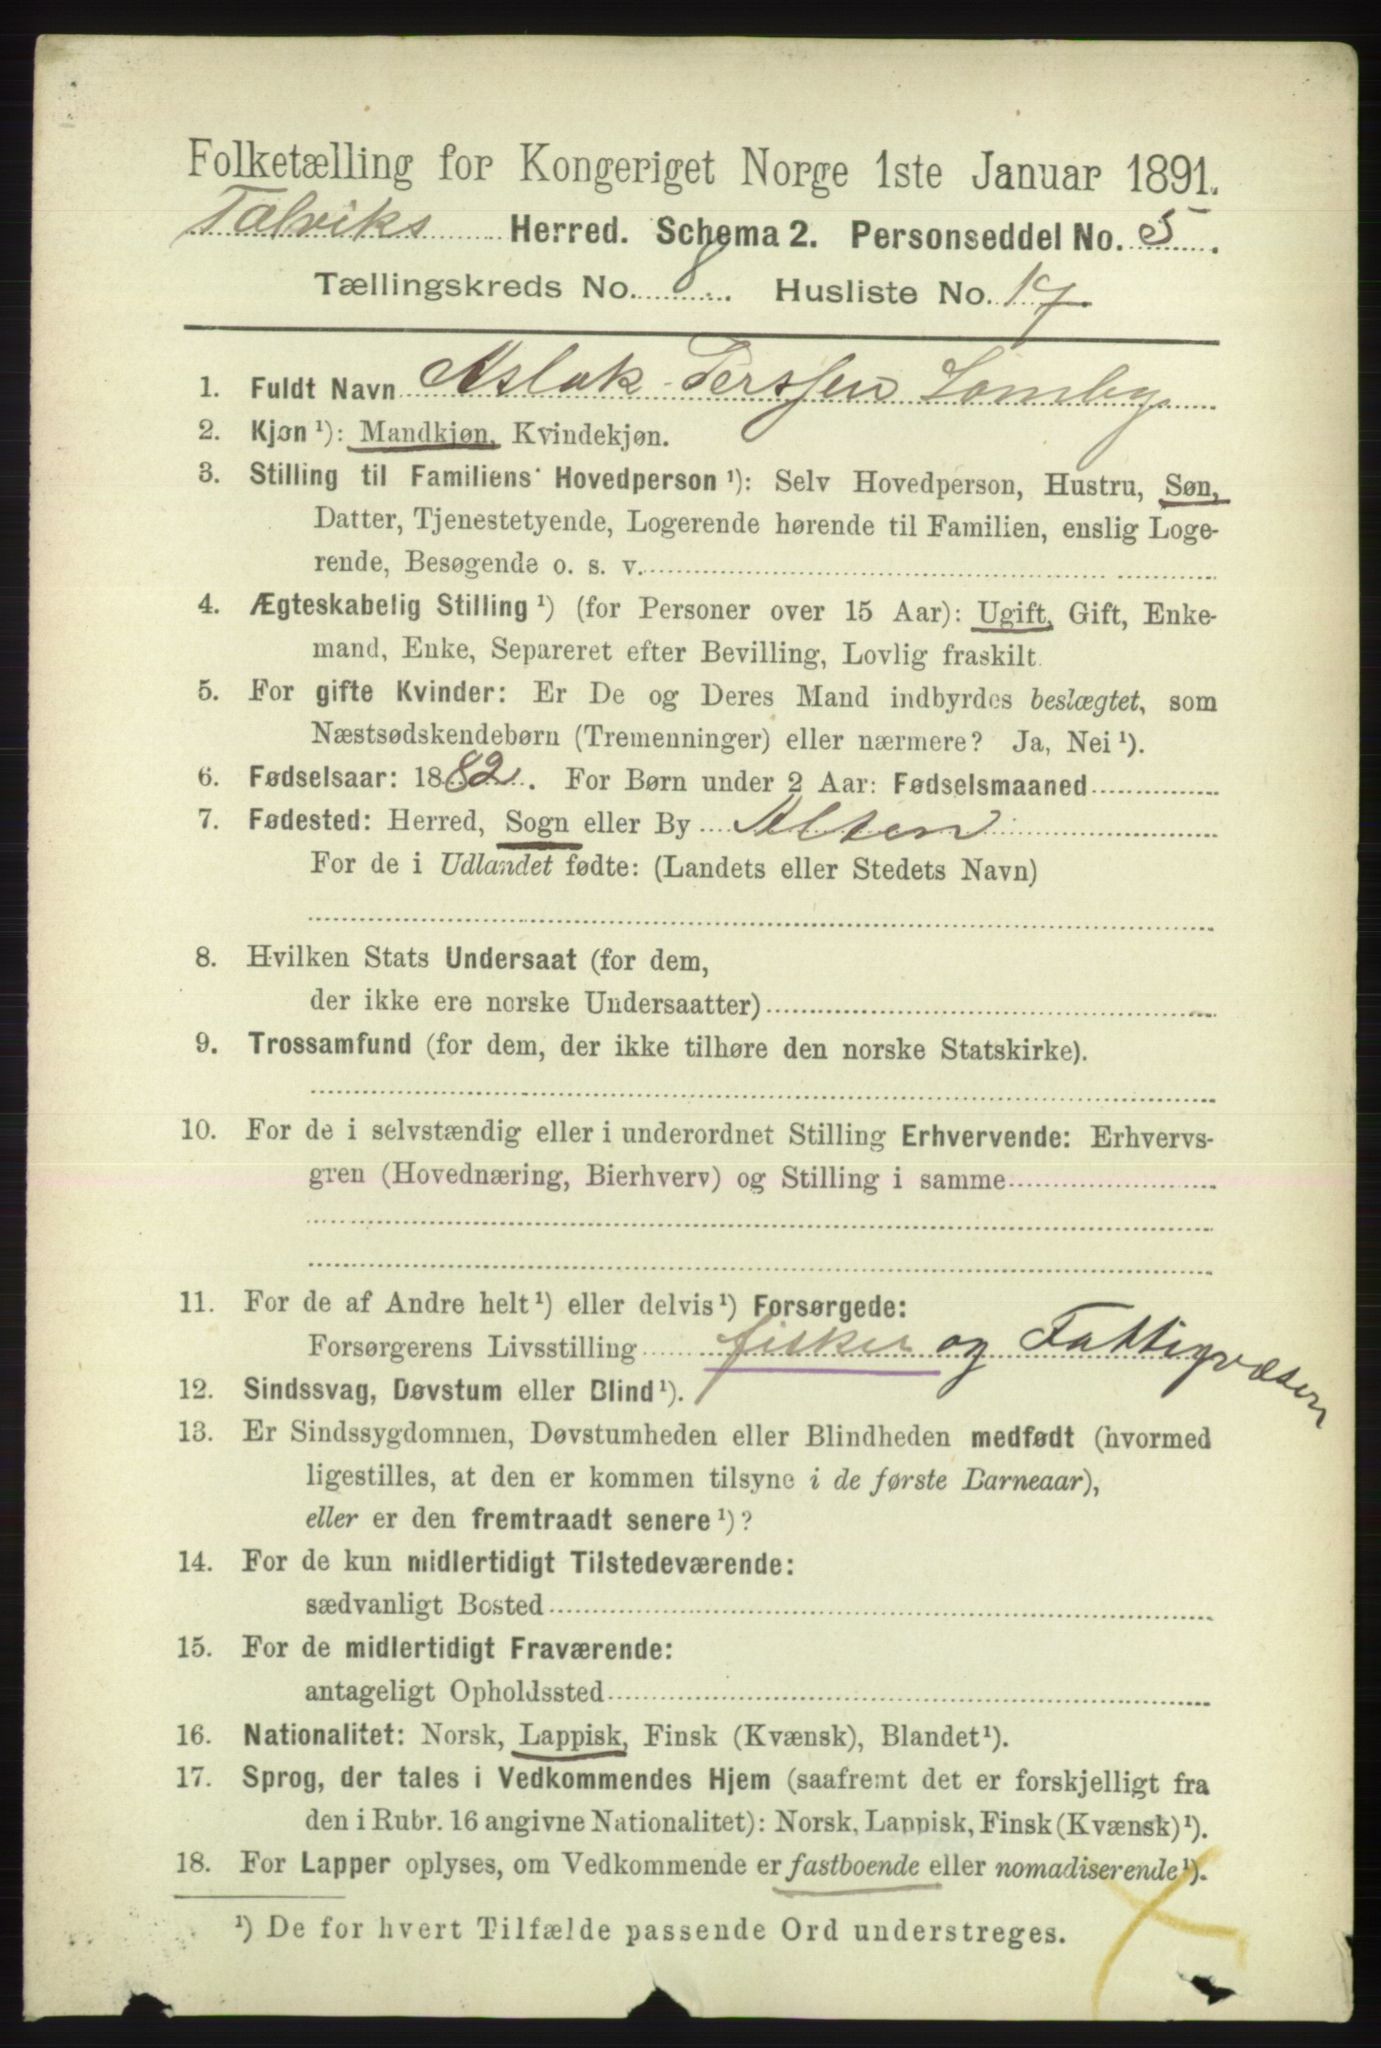 Folketælling for Kongeriget Norge 1ste Januar 1891.
Talviks Herred. Schema 2. Personseddel No. 5.
Tællingskreds No. 8. Husliste No. 17
1. Fuldt Navn Aslak Perssen Somby
2. Kjøn¹): Mandkjøn, Kvindekjøn.
3. Stilling til Familiens Hovedperson¹): Selv Hovedperson, Hustru, Søn,
Datter, Tjenestetyende, Logerende hørende til Familien, enslig Loge-
rende, Besøgende o. s. v.
4. Ægteskabelig Stilling¹) (for Personer over 15 Aar): Ugift, Gift, Enke-
mand, Enke, Separeret efter Bevilling, Lovlig fraskilt
5. For gifte Kvinder: Er De og Deres Mand indbyrdes beslægtet, som
Næstsødskendebørn (Tremenninger) eller nærmere? Ja, Nei¹).
6. Fødselsaar: 1882. For Børn under 2 Aar: Fødselsmaaned
7. Fødested: Herred, Sogn eller By Alten
For de i Udlandet fødte: (Landets eller Stedets Navn)
8. Hvilken Stats Undersaat (for dem,
der ikke ere norske Undersaatter)
9. Trossamfund (for dem, der ikke tilhøre den norske Statskirke).
10. For de i selvstændig eller i underordnet Stilling Erhvervende: Erhvervs-
gren (Hovednæring, Bierhverv) og Stilling i samme
11. For de af Andre helt¹) eller delvis¹) Forsørgede:
Forsørgerens Livsstilling fisker og Fattigvæsen
12. Sindssvag, Døvstum eller Blind¹).
13. Er Sindssygdommen, Døvstumheden eller Blindheden medfødt (hvormed
ligestilles, at den er kommen tilsyne i de første Barneaar),
eller er den fremtraadt senere¹)?
14. For de kun midlertidigt Tilstedeværende:
sædvanligt Bosted
15. For de midlertidigt Fraværende:
antageligt Opholdssted
16. Nationalitet: Norsk, Lappisk, Finsk (Kvænsk), Blandet¹).
17. Sprog, der tales i Vedkommendes Hjem (saafremt det er forskjelligt fra
den i Rubr. 16 angivne Nationalitet): Norsk, Lappisk, Finsk (Kvænsk)¹).
18. For Lapper oplyses, om Vedkommende er fastboende eller nomadiserende¹).
¹) De for hvert Tilfælde passende Ord understreges.